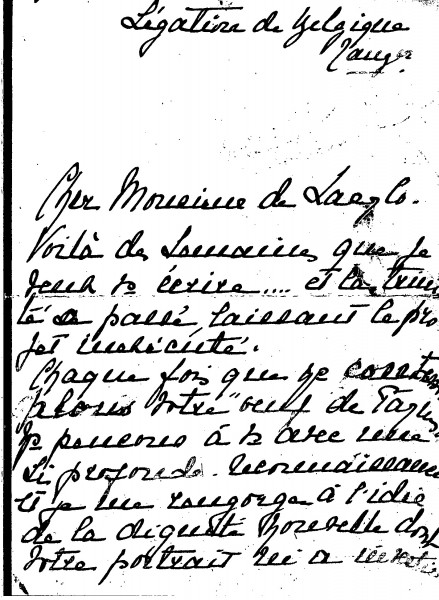 Légation de Belgique
Tanger
Cher Monsieur de Laszlo.
Voilà des semaines que je
veux v. écrire.... et la
té a passé laissant le pro
jet inexécuté.
Chaque fois que je
votre "oeuf de
pensons à v. avec une
si profonde reconnaissance
et je me rengorge à l'idée
de la dignité nouvelle dont
votre portrait m'a